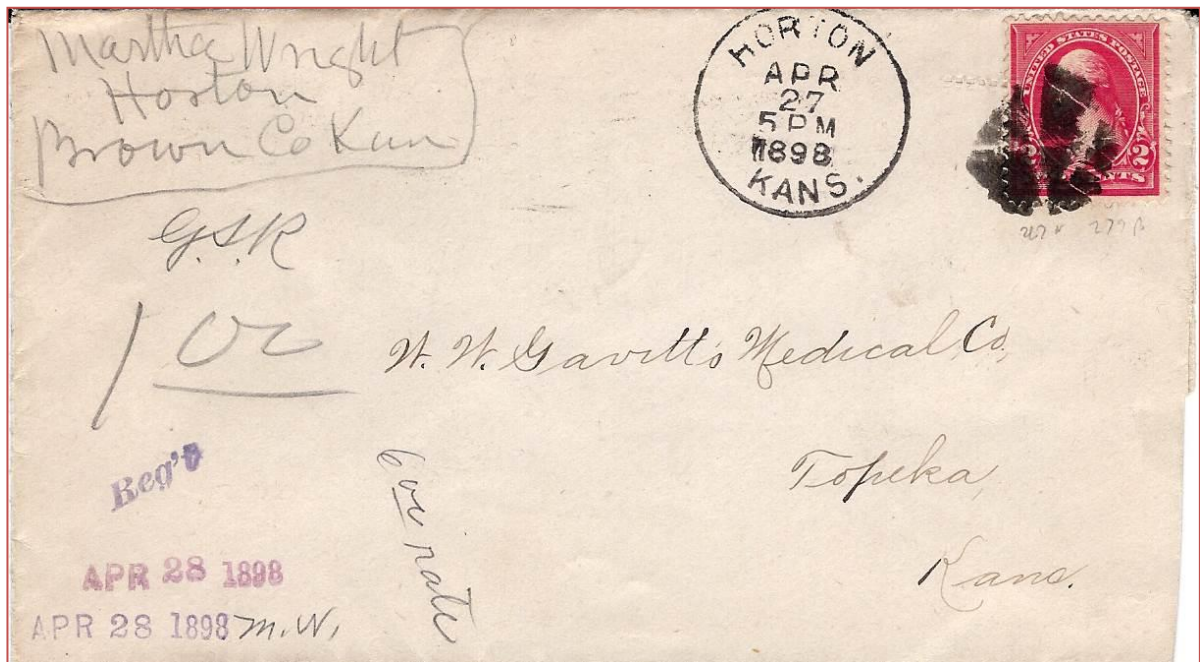 Martha Wright
Horton
Brown Co Kan
HORTON
APR
27
5 PM
1898
KANS.
UNITED STATES POSTAGE
2 2
CENTS
279 B
G.S.R
1 00
W. W. Gavitt's Medical Co.
Topeka,
Kans.
Reg'd
APR 28 1898
APR 28 1898 M.W.